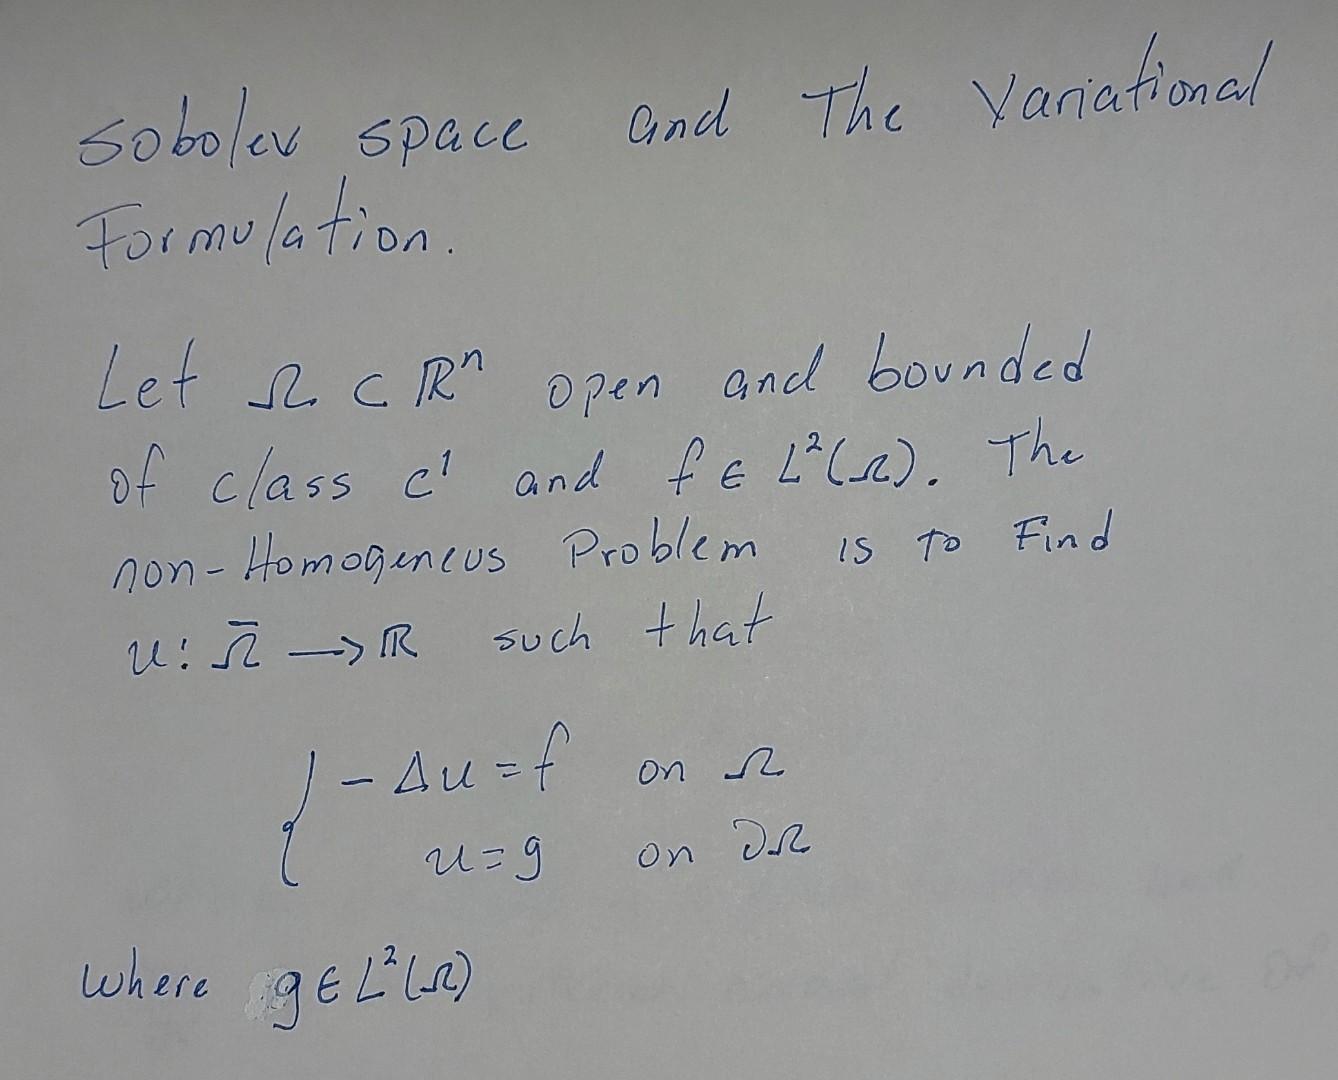 Sobolev space and The Variational
Formulation.
Let Ω ⊂ ℝⁿ open and bounded
of class c¹ and f ∈ L²(Ω). The
non-Homogeneus Problem is to Find
u: Ω̄ → ℝ such that
{ -Δu = f on Ω
u = g on ∂Ω
where g ∈ L²(Ω)